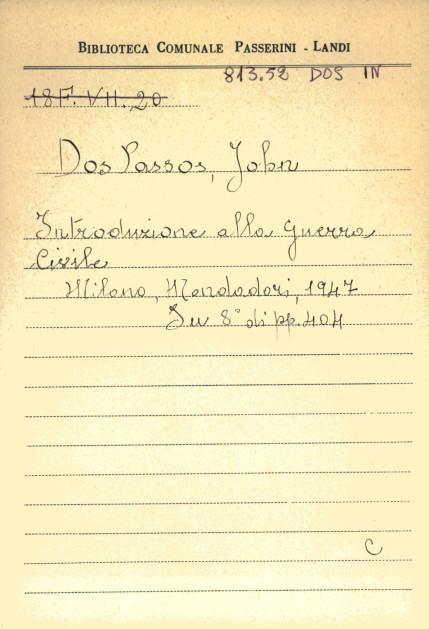 BIBLIOTECA COMUNALE PASSERINI - LANDI
813.52 DOS IN
18F. VII. 20
Dos Passos, John
Introduzione alla guerra
Civile
Milano, Mondadori, 1947
In 8° di pp. 404
C